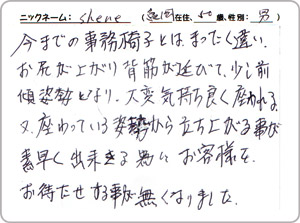 ニックネーム: shene (在住、50歳、性別: 男)
今までの事務椅子とは、まったく違い、
お尻が上がり背筋が延びて、少し前
傾姿勢となり、大変気持ち良く座われる。
又、座わっている姿勢から立ち上がる事が
素早く出来る為、お客様を
お待たせする事が無くなりました。